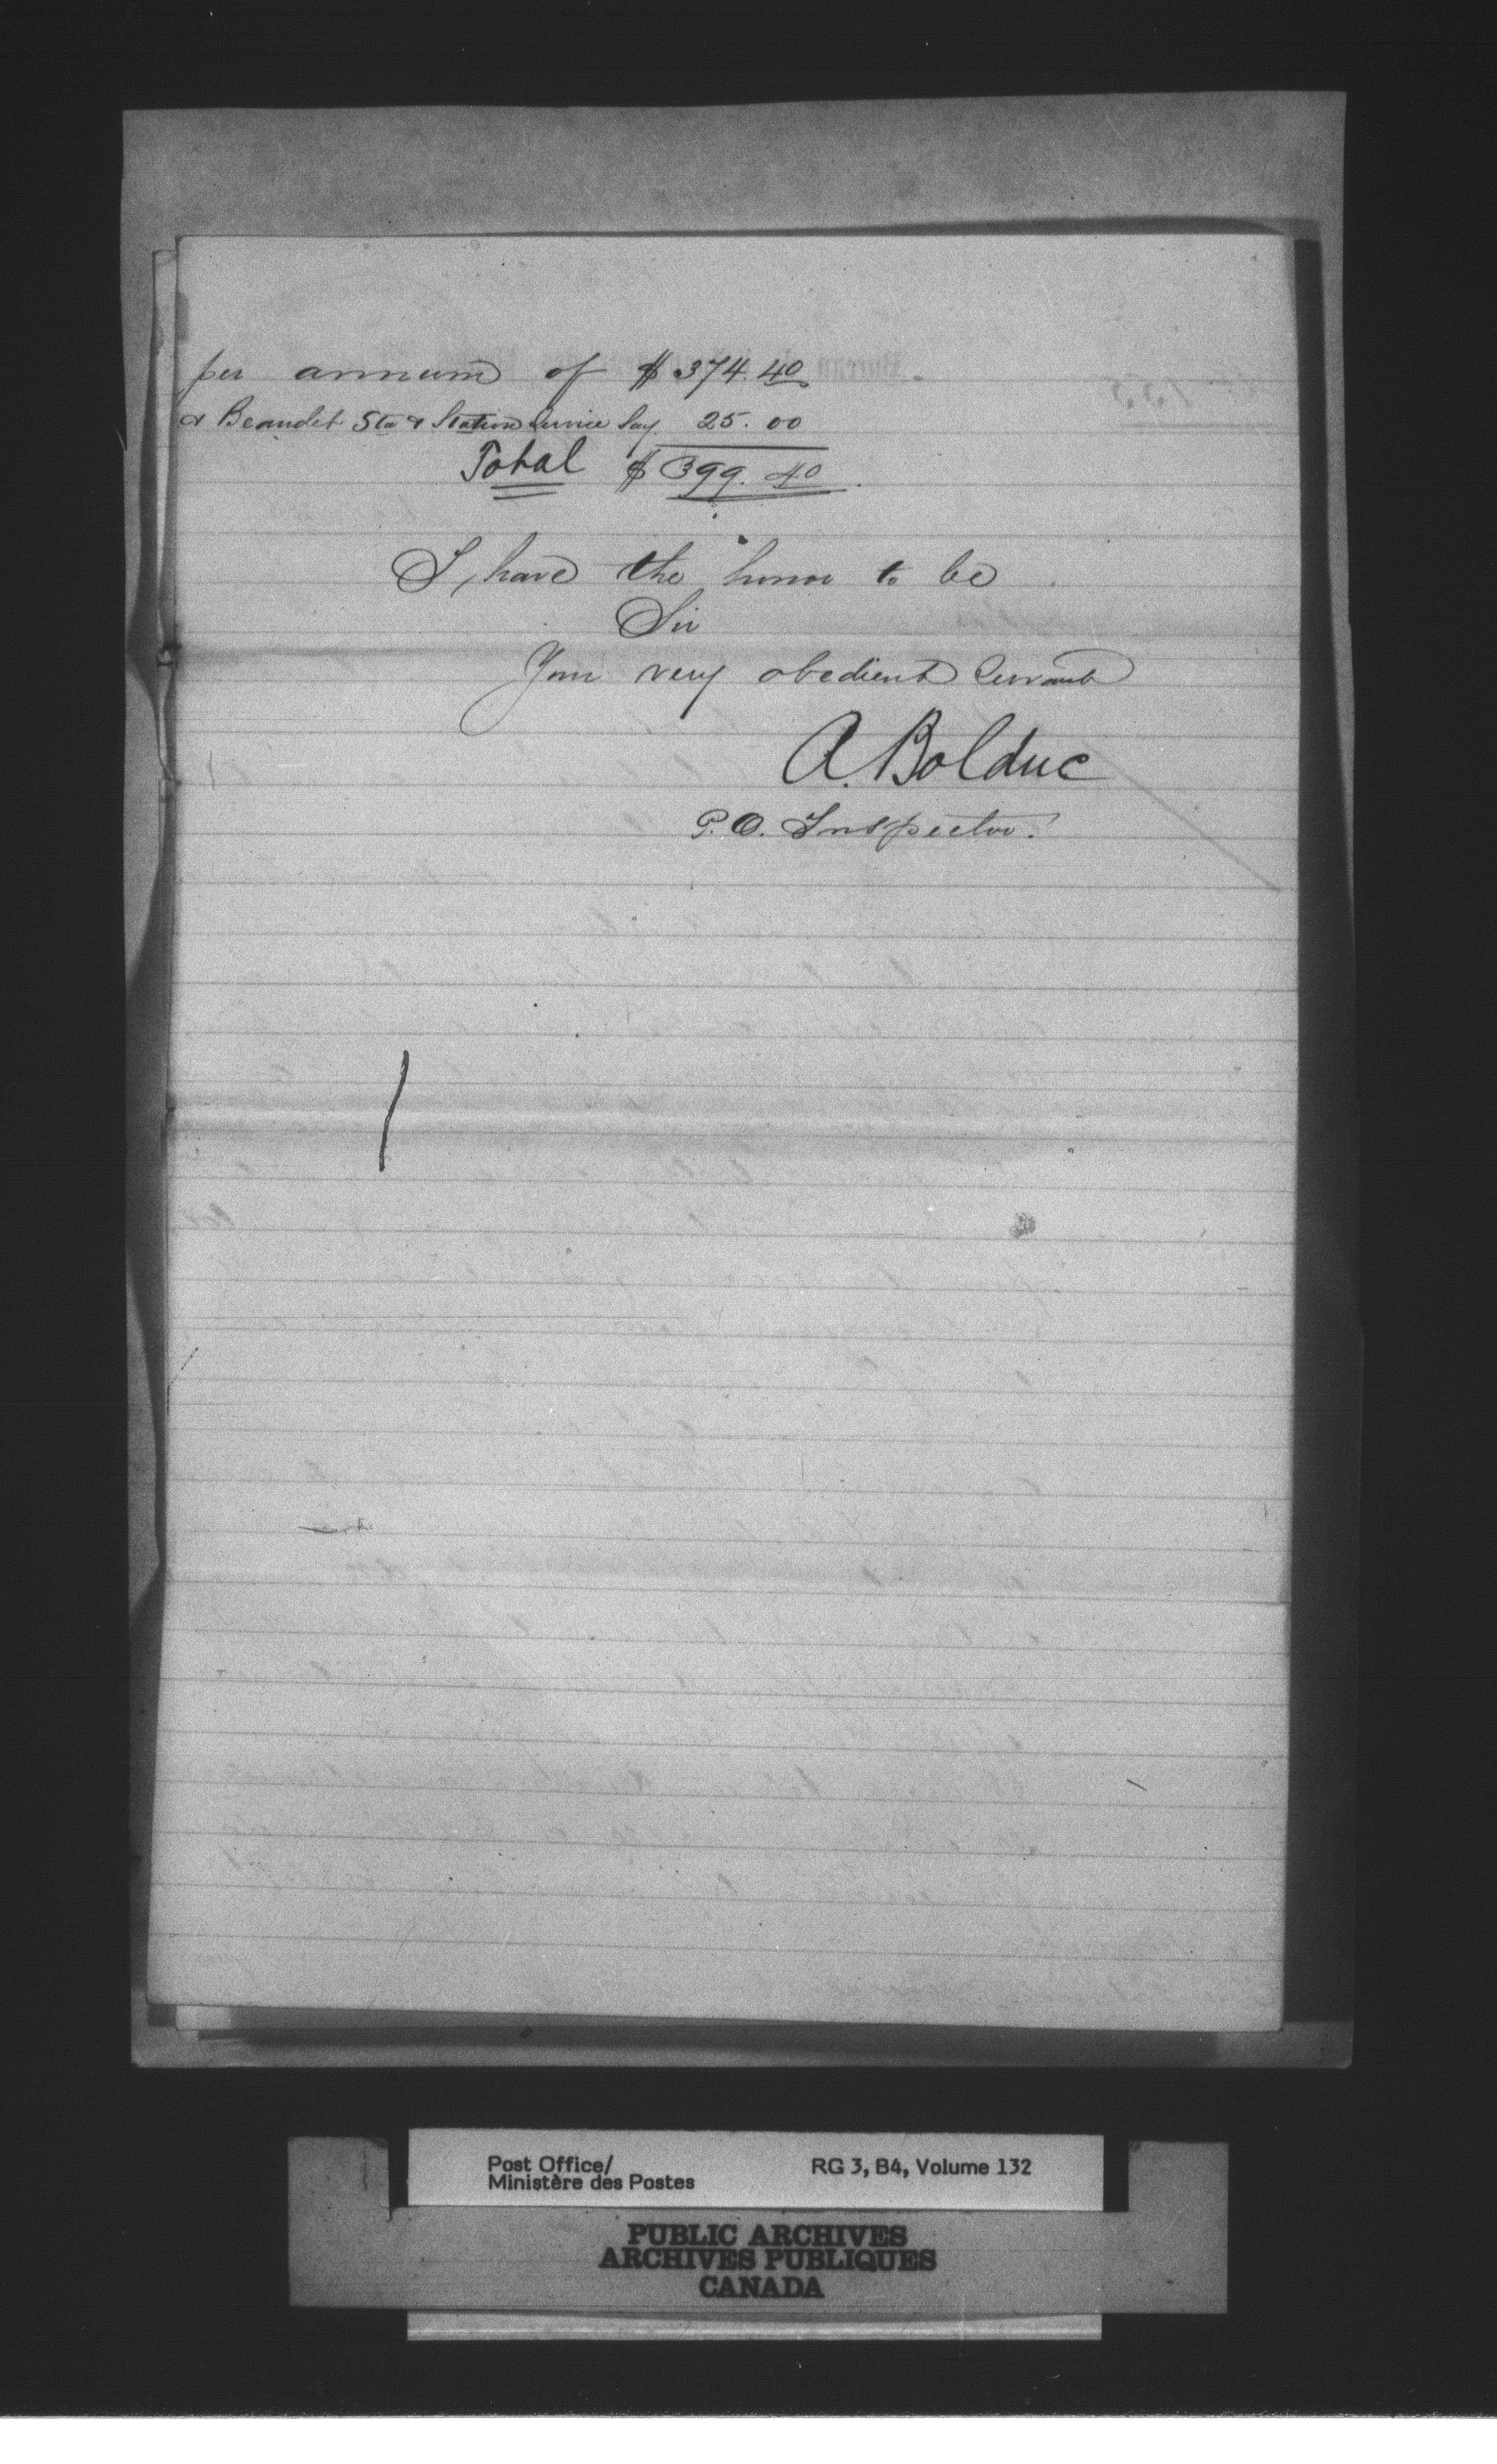 per annum of $374.40
& Beaudet Sta & Station Service Say 25.00
Total $399.40.
I have the honor to be
Sir
Your very obedient Servant
A. Bolduc
P.O. Inspector.
Post Office/
Ministère des Postes
RG 3, B4, Volume 132
PUBLIC ARCHIVES
ARCHIVES PUBLIQUES
CANADA